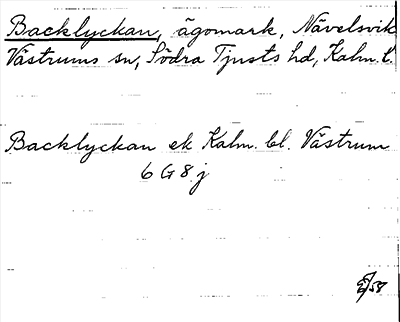 Backlyckan, ägomark, Nävelsvik
Västrums sn, Södra Tjusts hd, Kalm. l.
Backlyckan ek Kalm. bl. Västrum
6 G 8 j
/58